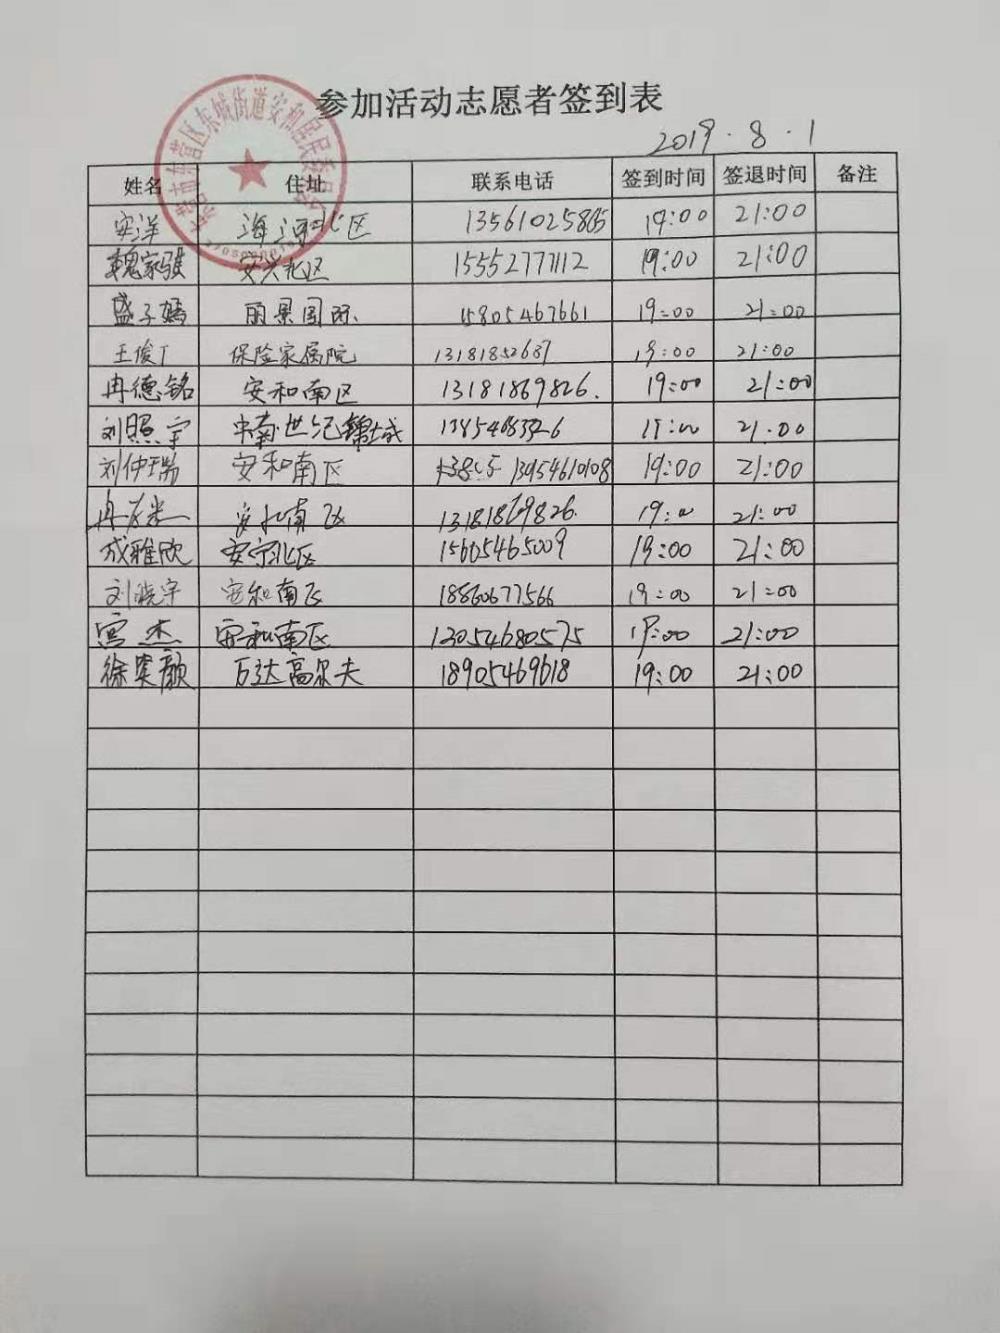 参加活动志愿者签到表
2019.8.1
姓名 住址 联系电话 签到时间 签退时间 备注
安洋 海河北区 13561025865 19:00 21:00
魏家骐 安兴北区 15552777112 19:00 21:00
盛子嫣 丽景国际 15805467661 19:00 21:00
王俊丁 保险家属院 13181852687 19:00 21:00
冉德铭 安和南区 13181869826. 19:00 21:00
刘照宇 中南世纪锦城 19:00 21:00
刘仲瑞 安和南区 13954610108 19:00 21:00
安和南区 13181869826. 19:00 21:00
成雅欣 安宁北区 15605465009 19:00 21:00
刘晓宇 安和南区 18860677566 19:00 21:00
宫杰 安和南区 13054680575 19:00 21:00
徐奕歆 万达高尔夫 18905469618 19:00 21:00